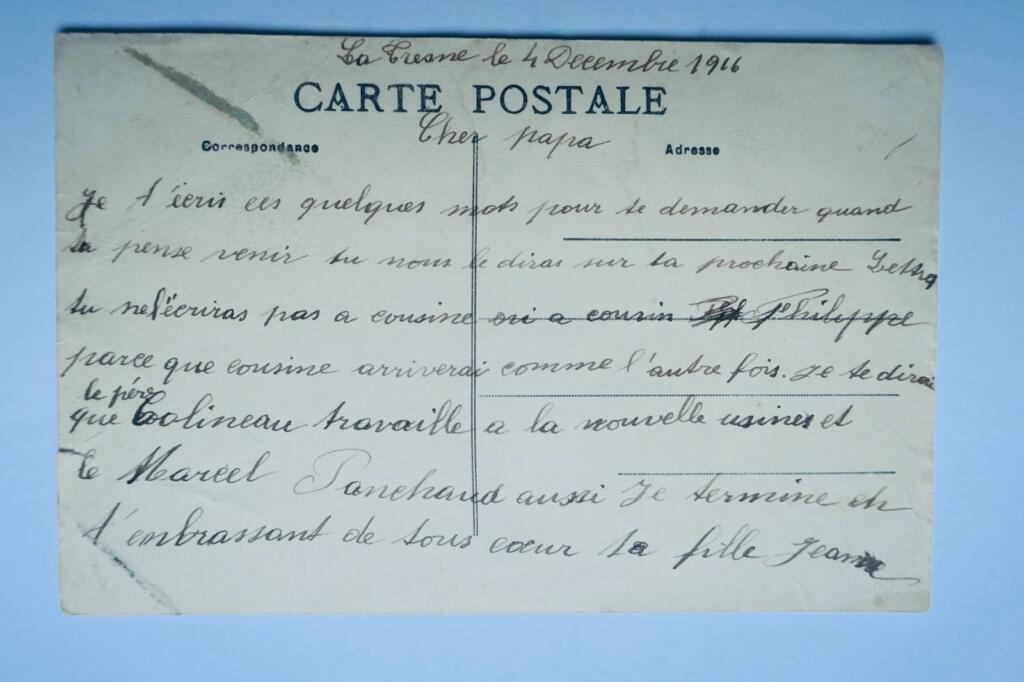 La Tresne le 4 Decembre 1916
CARTE POSTALE
Cher papa
Correspondance
Adresse
Je t'écris ces quelques mots pour te demander quand
tu pense venir tu nous le diras sur ta prochaine Lettre
tu nel'écriras pas a cousine ni a cousin Philippe
parce que cousine arriverai comme l'autre fois. Je te dirai
le pére
que Colineau travaille a la nouvelle usines et
le Marcel Panchaud aussi Je termine en
t'enbrassant de tous cœur ta fille Jeanne